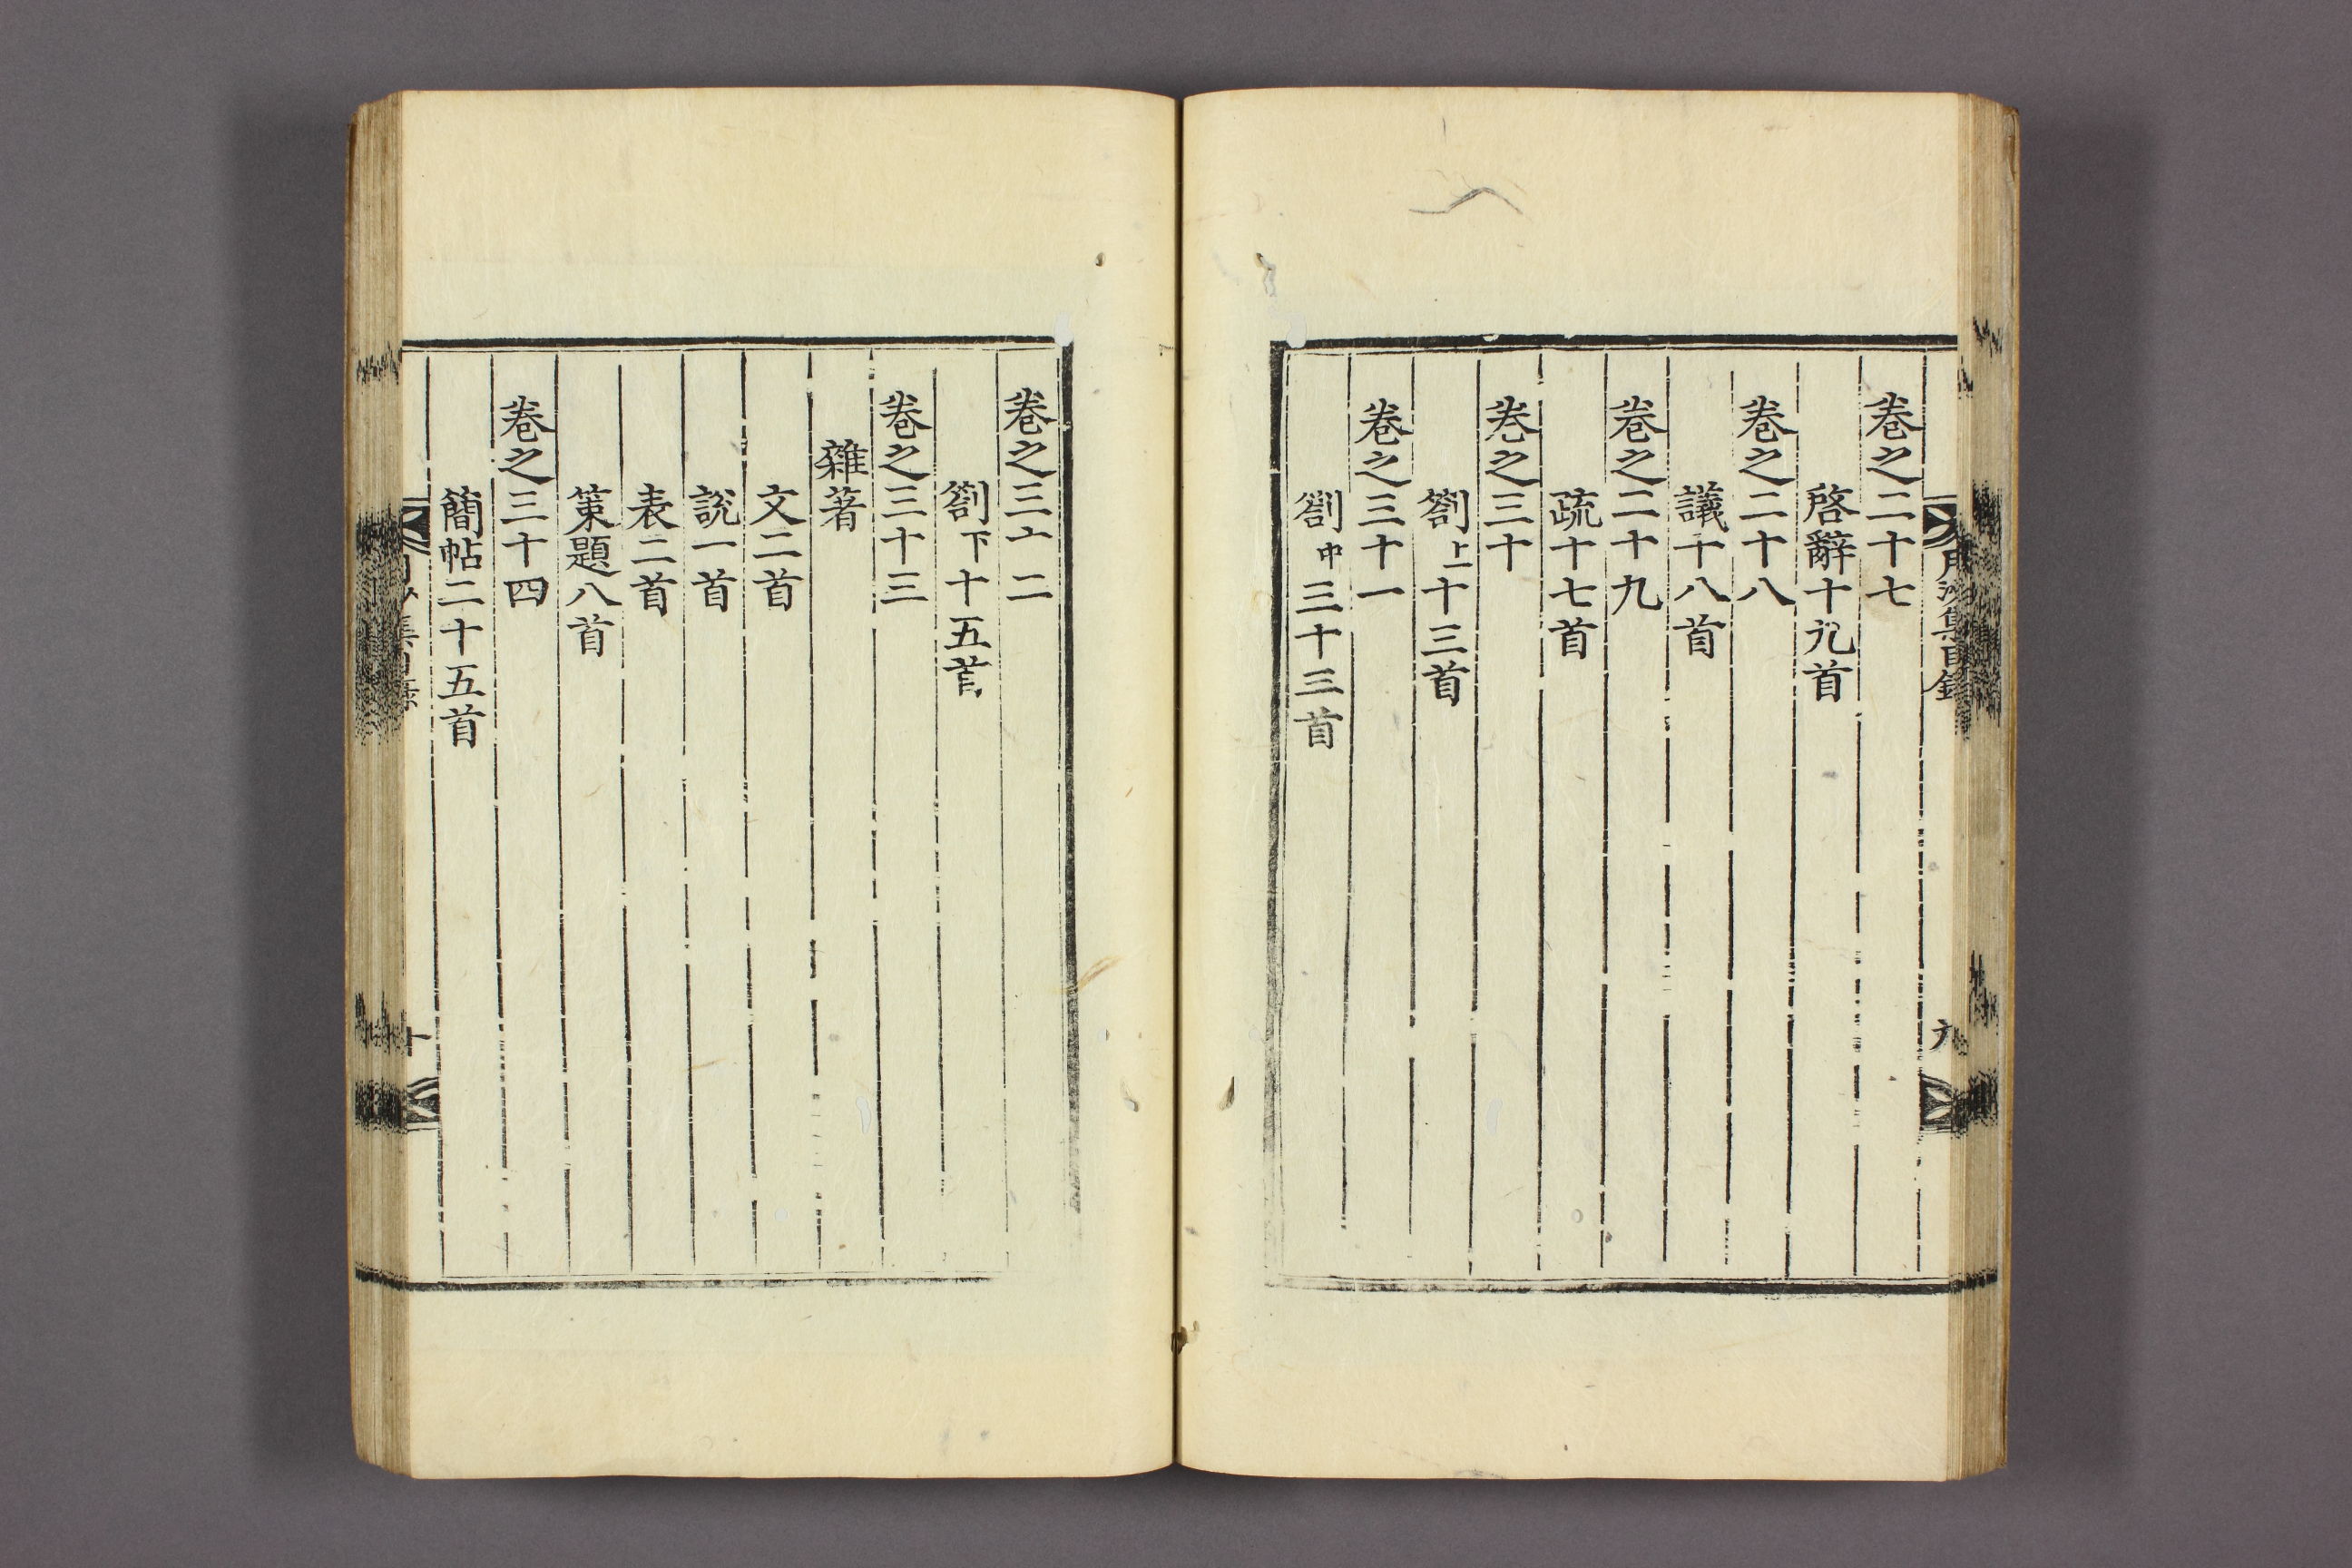 月沙集目錄
九
卷之二十七
啓辭十九首
卷之二十八
議十八首
卷之二十九
疏十七首
卷之三十
劄上十三首
卷之三十一
劄中三十三首
卷之三十二
劄下十五首
卷之三十三
雜著
文二首
說一首
表二首
策題八首
卷之三十四
簡帖二十五首
十